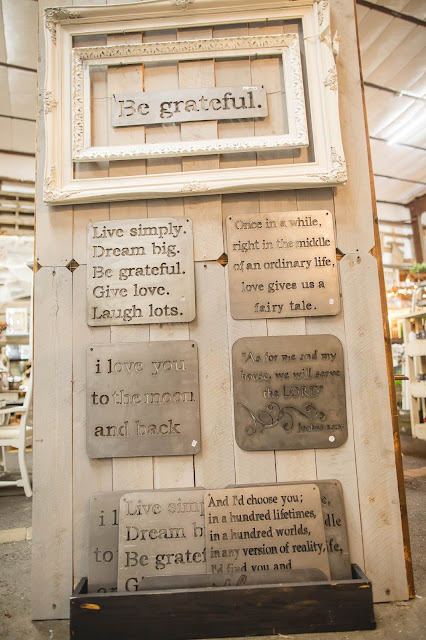 Be grateful.
Live simply.
Dream big.
Be grateful.
Give love.
Laugh lots.
Once in a while,
right in the middle
of an ordinary life,
love gives us a
fairy tale.
i love you
to the moon
and back
"As for me and my
house, we will serve
the LORD"
i l
to
an
Live simp
Dream b
Be gratef
And I'd choose you;
in a hundred lifetimes,
in a hundred worlds,
in any version of reality,
I'd find you and
ddle
life,